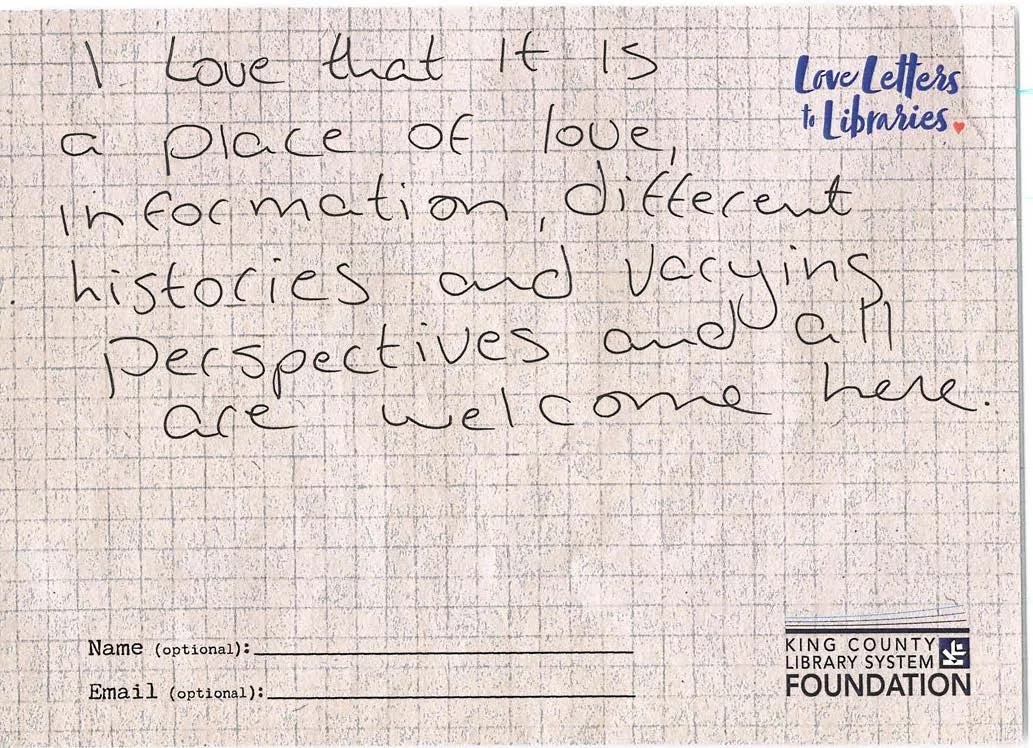 I Love that it is
Love Letters
to Libraries
a place of love,
information, different
histories and varying
perspectives and all
are welcome here.
Name (optional):
Email (optional):
KING COUNTY
LIBRARY SYSTEM
FOUNDATION